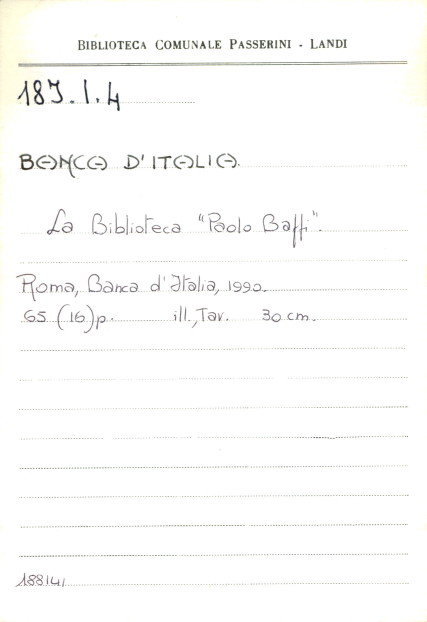 BIBLIOTECA COMUNALE PASSERINI - LANDI
187.I.4
BANCA D'ITALIA.
La Biblioteca "Paolo Baffi".
Roma, Banca d'Italia, 1990.
65 (16)p. ill., Tav. 30 cm.
188141